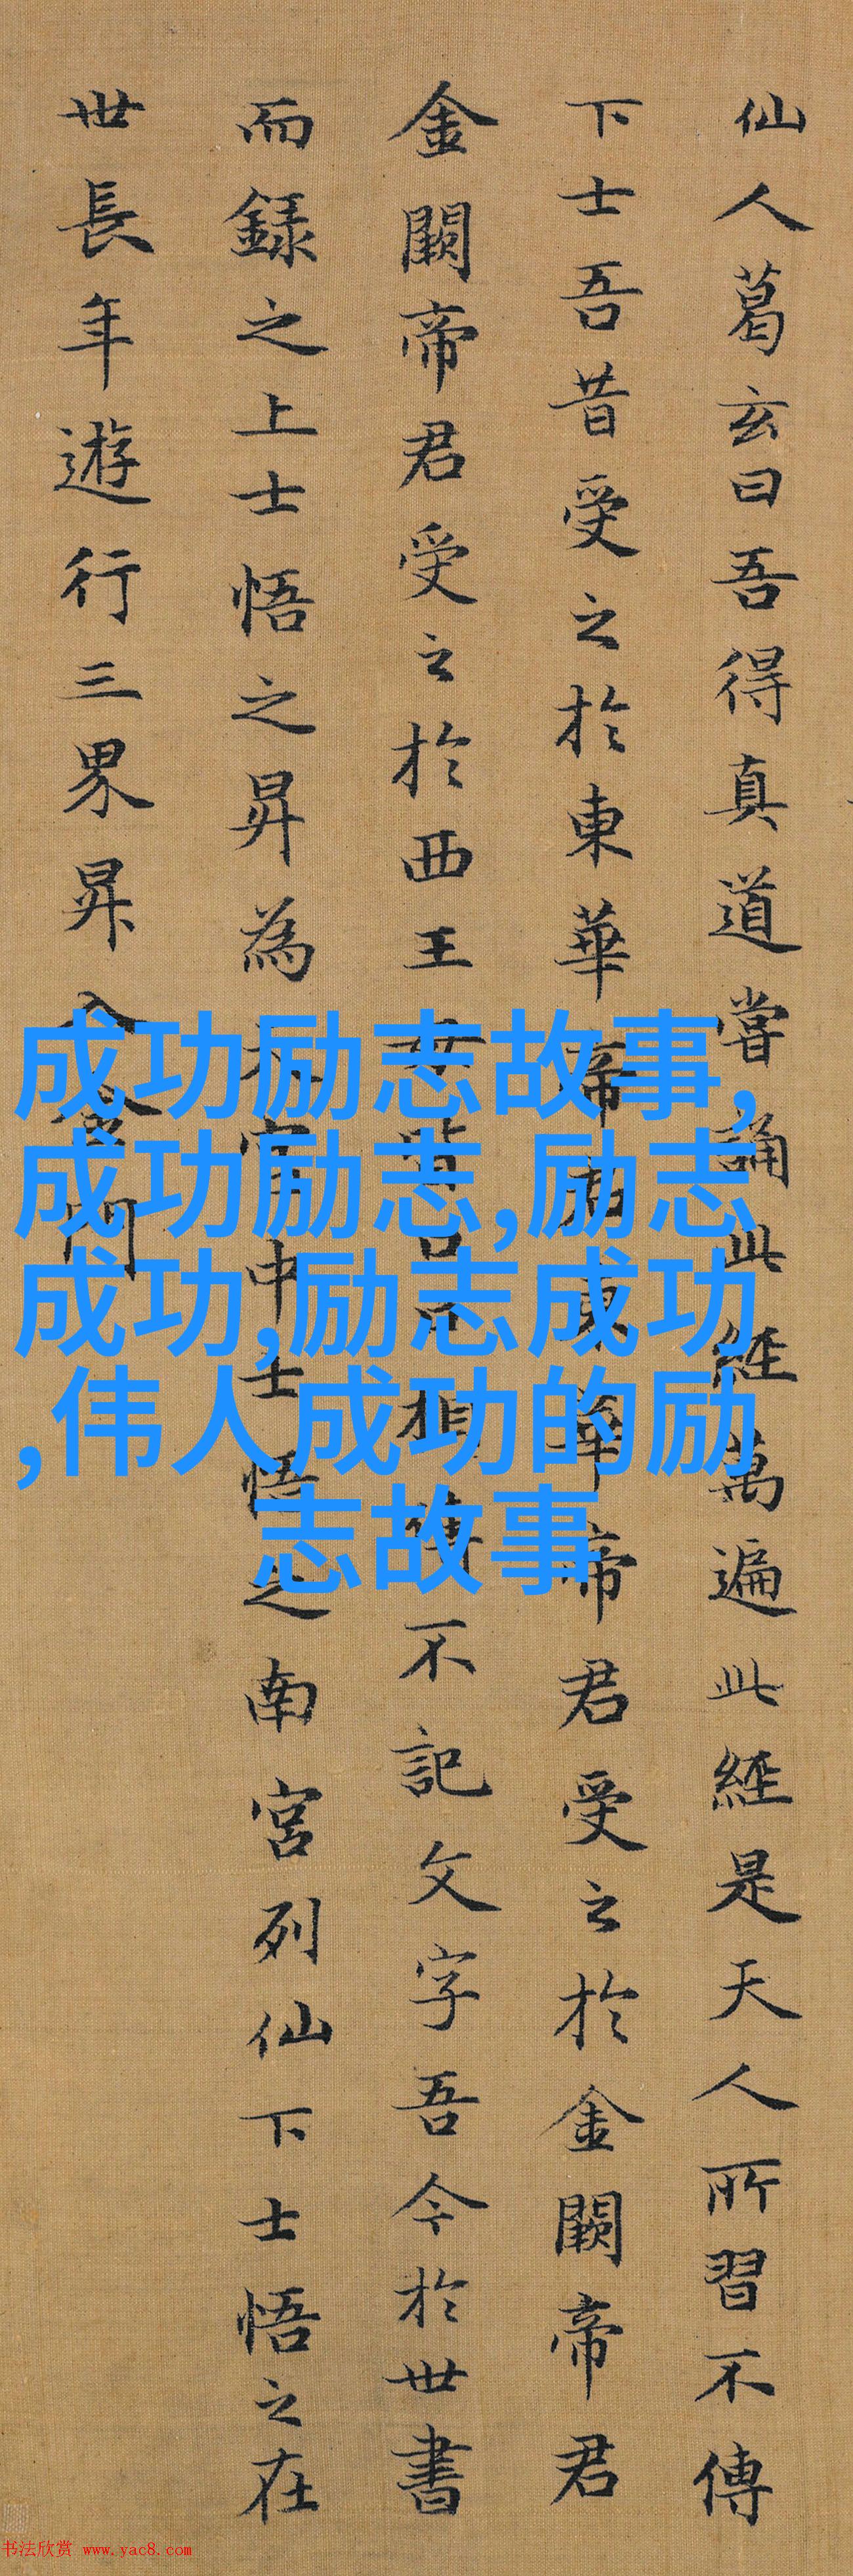 仙人葛玄曰吾得真道嘗誦此經萬遍此經是天人所習不傳
下士吾昔受之於東華帝君東華帝君受之於金闕帝君
金闕帝君受之於西王母皆口口相傳不記文字吾今於世書
而録之上士悟之昇為天官中士悟之南宮列仙下士悟之在
世長年遊行三界昇入金門
成功励志故事,
成功励志,励志
成功,励志成功
,伟人成功的励
志故事
书法欣赏 www.yac8.com